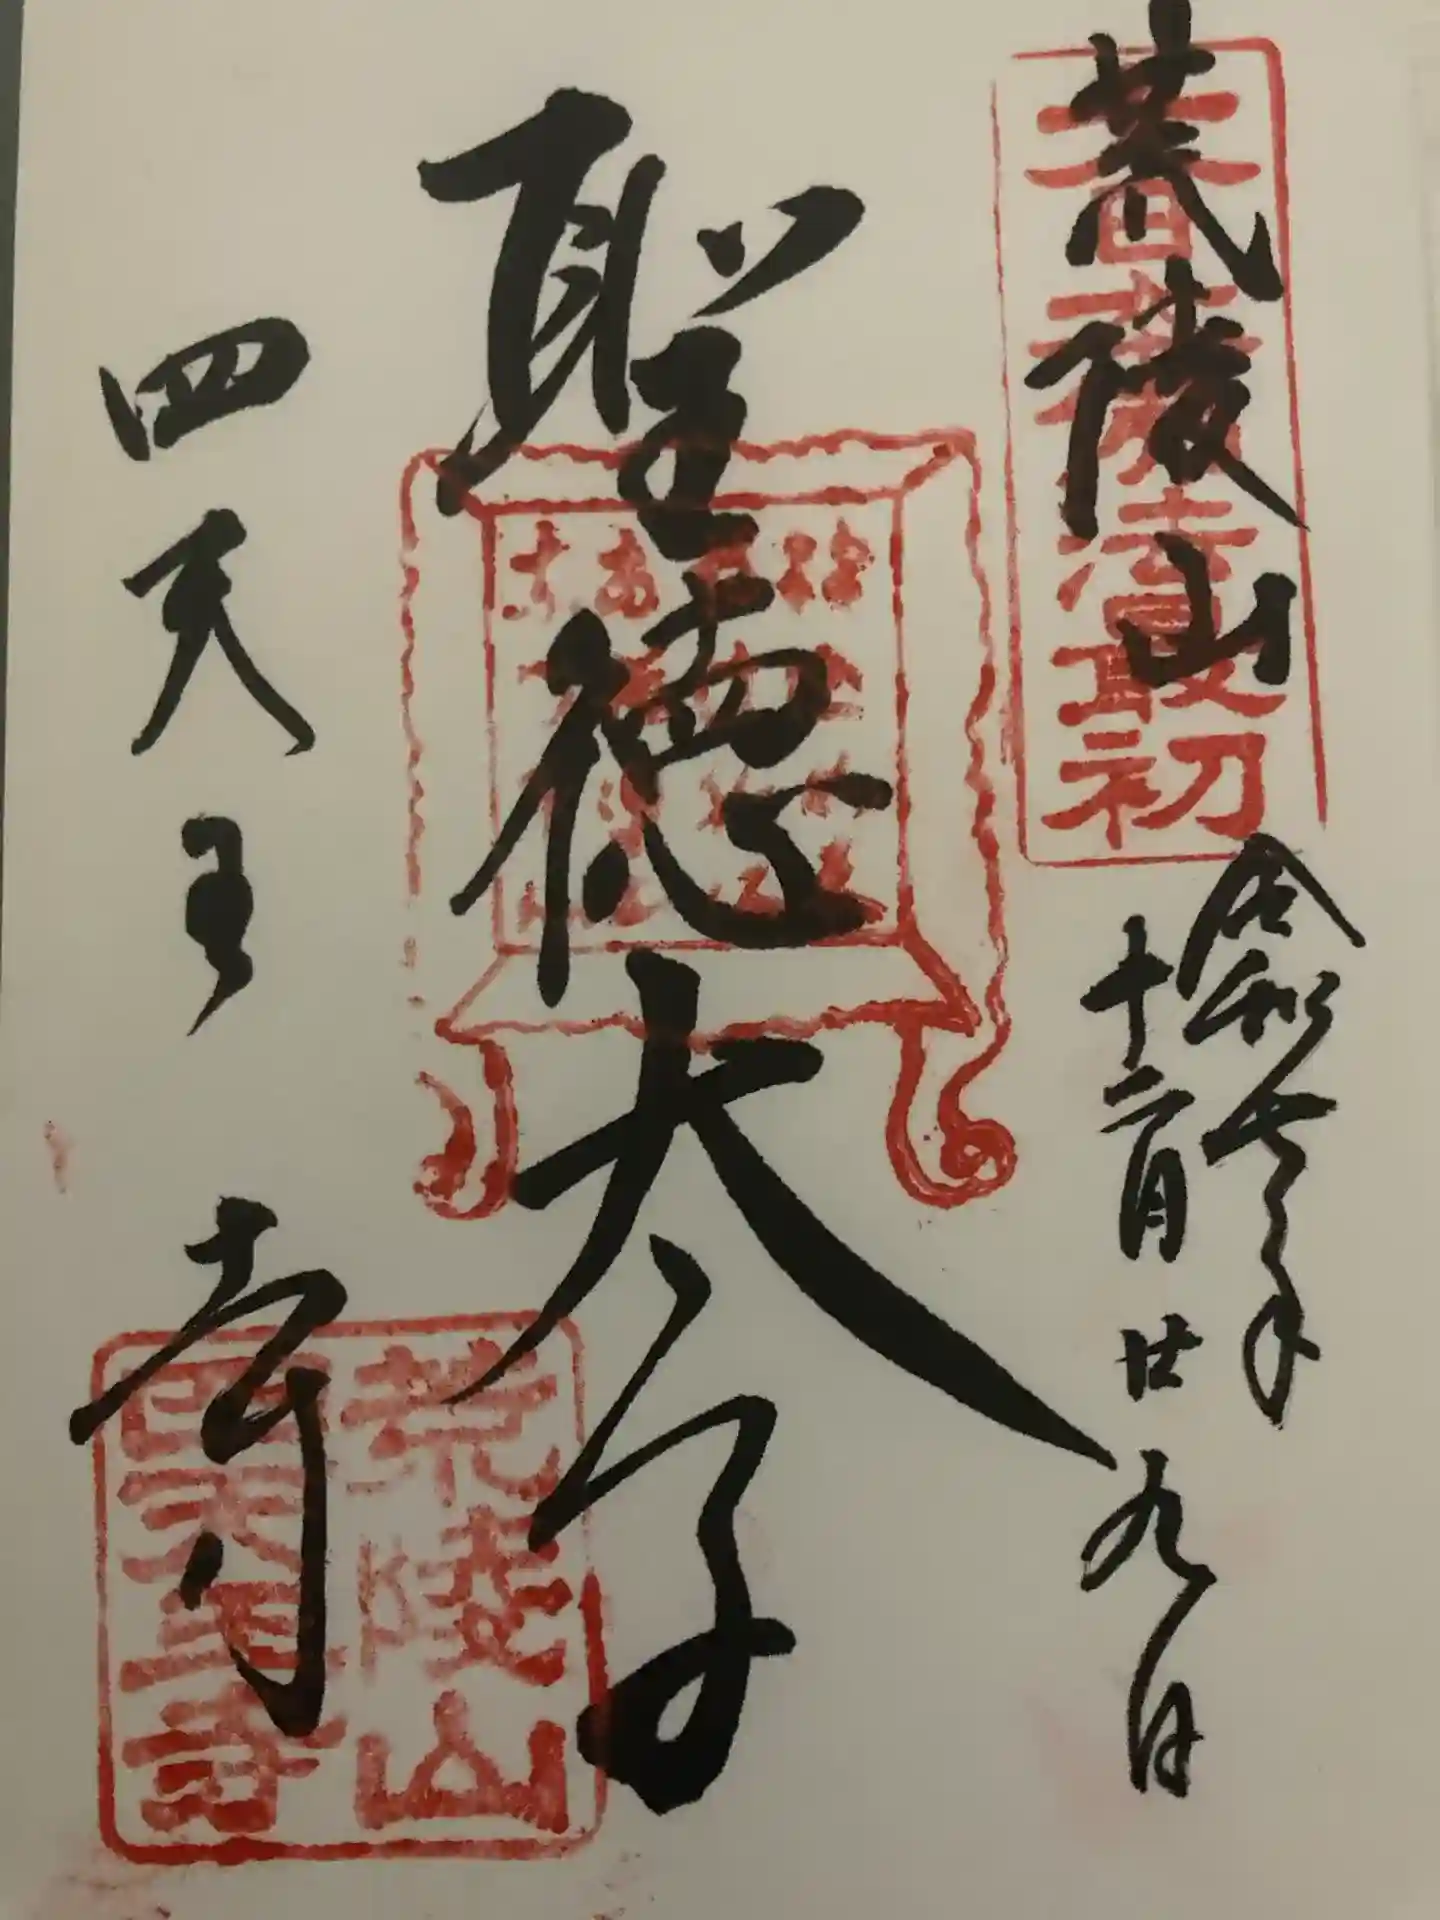 荒陵山
大日本佛法最初
令和七年
十二月廿九日
聖徳太子
四天王寺
荒陵山
四天王寺